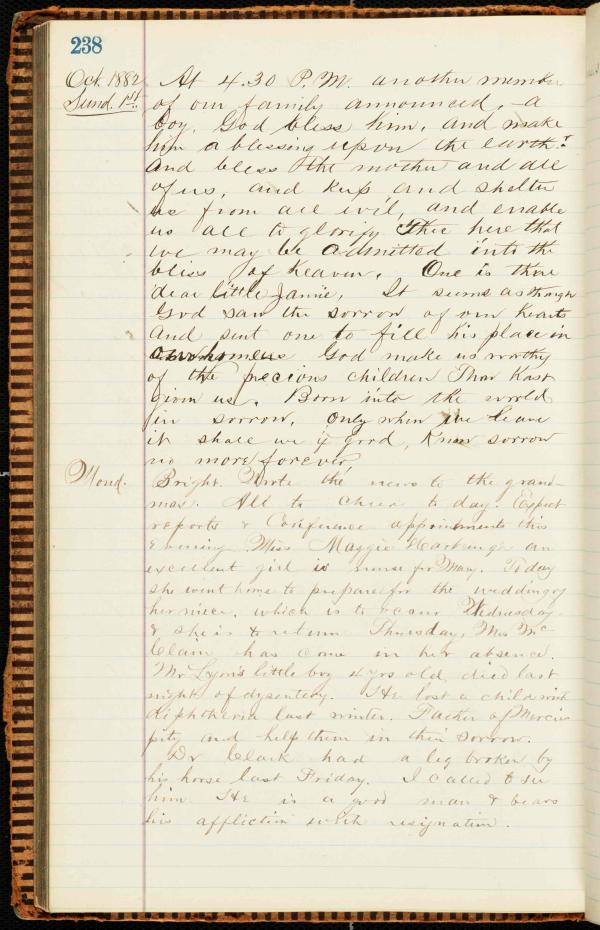 238
Oct. 1882 At 4.30 P.M. another member
Sund. 1st. of our family announced, - a
boy. God bless him, and make
him a blessing upon the earth.
And bless the mother and all
of us, and keep and shelter
us from all evil, and enable
us all to glorify Thee here that
we may be admitted into the
bliss of heaven. One is there
dear little Jamie. It seems as though
God saw the sorrow of our hearts
And sent one to fill his place in
our homes God make us worthy
of the precious children Thou hast
given us. Born into the world
in sorrow, only when we leave
it shall we if good, know sorrow
no more forever.
Mond. Bright. Wrote the news to the grand-
mas. All to cheer to day. Expect
reports & Conference appointments this
Evening. Miss Maggie an
excellent girl is nurse for Mary. Today
she went home to prepare for the wedding of
her niece, which is to occur Wednesday
& she is to return Thursday. Mrs Mc
Clain has come in her absence.
Mr Lyon's little boy 4 yrs old, died last
night of dysentery. He lost a child with
diphtheria last winter. Father of Mercies
pity and help them in their sorrow.
Dr Clark had a leg broken by
his horse last Friday. I called to see
him. He is a good man & bears
his affliction with resignation.